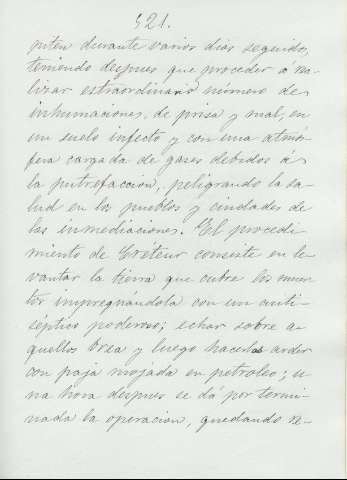 521.
piten durante varios dias seguidos,
teniendo despues que proceder á rea-
lizar estraordinario número de
inhumaciones, de prisa y mal, en
un suelo infecto y con una atmós-
fera cargada de gases debidos á
la putrefaccion, peligrando la sa-
lud en los pueblos y ciudades de
las inmediaciones. El procedi-
miento de Creteur consiste en le-
vantar la tierra que cubre los muer-
tos impregnándola con un anti-
séptico poderoso; echar sobre a-
quellos brea y luego hacerlos arder
con paja mojada en petroleo; u-
na hora despues se dá por termi-
nada la operacion, quedando re-